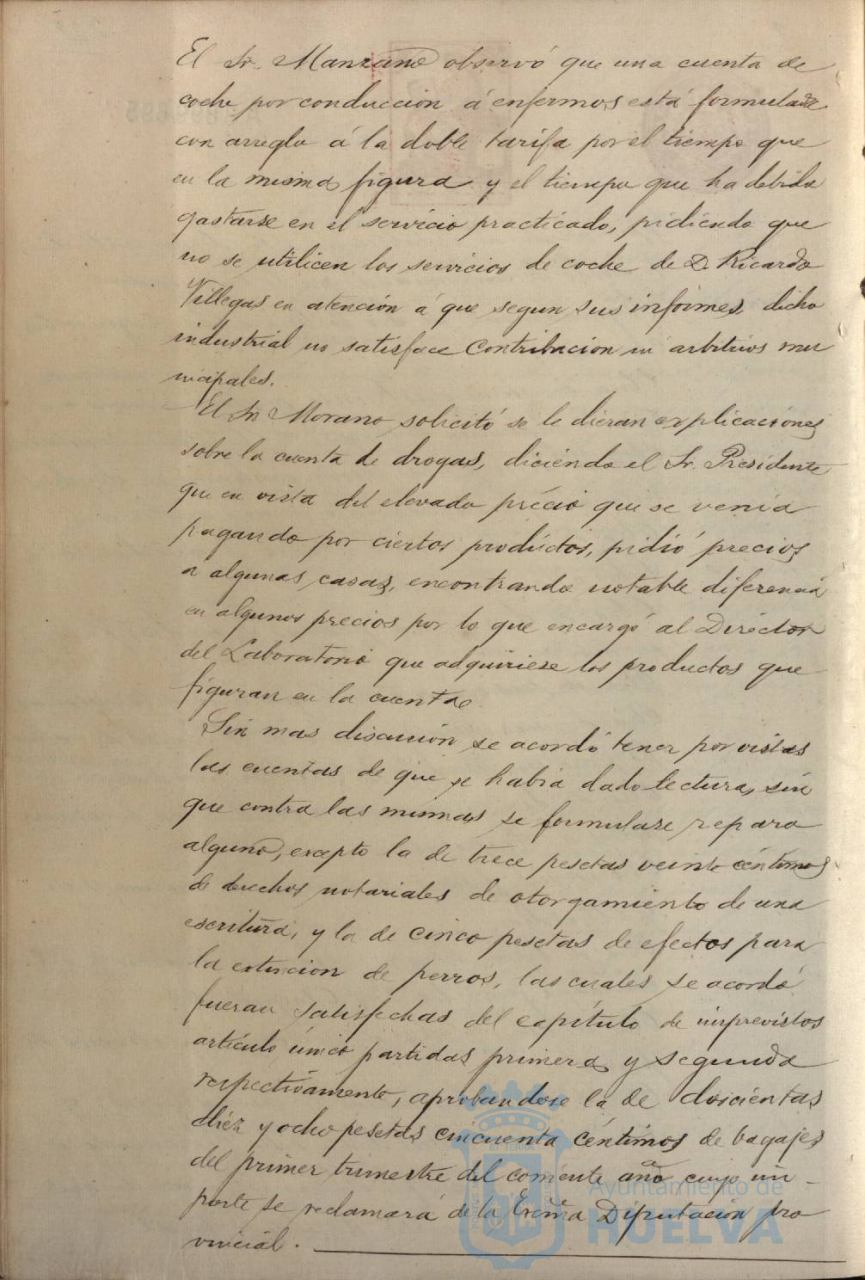 El Sr. Manzano observó que una cuenta de
coche por conduccion á enfermos está formulada
con arreglo á la doble tarifa por el tiempo que
en la misma figura y el tiempo que ha debido
gastarse en el servicio practicado, pidiendo que
no se utilicen los servicios de coche de D. Ricardo
Villegas en atención á que segun sus informes, dicho
industrial no satisface contribucion ni arbitrios mu
nicipales.
El Sr Morano solicitó se le dieran explicaciónes
sobre la cuenta de drogas, diciendo el Sr. Presidente
que en vista del elevado précio que se venia
pagando por ciertos productos, pidió precios
a algunas casas, encontrando notable diferencia
en algunos precios por lo que encargó al Director
del Laboratorio que adquiriese los productos que
figuran en la cuenta.
Sin mas discusión se acordó tener por vistas
las cuentas de que se habia dado lectura, sin
que contra las mismas se formulase reparo
alguno, excepto la de trece pesetas veinte céntimos
de derechos notariales de otorgamiento de una
escritura, y la de cinco pesetas de efectos para
la extincion de perros, las cuales se acordó
fueran satisfechas del capítulo de imprevistos
artículo único partidas primera y segunda
respectivamente, aprobandose la de doscientas
diez y ocho pesetas cincuenta céntimos de bagajes
del primer trimestre del corriente año cuyo im-
porte se reclamará de la Excma Diputacion pro
vincial.
Ayuntamiento de
HUELVA